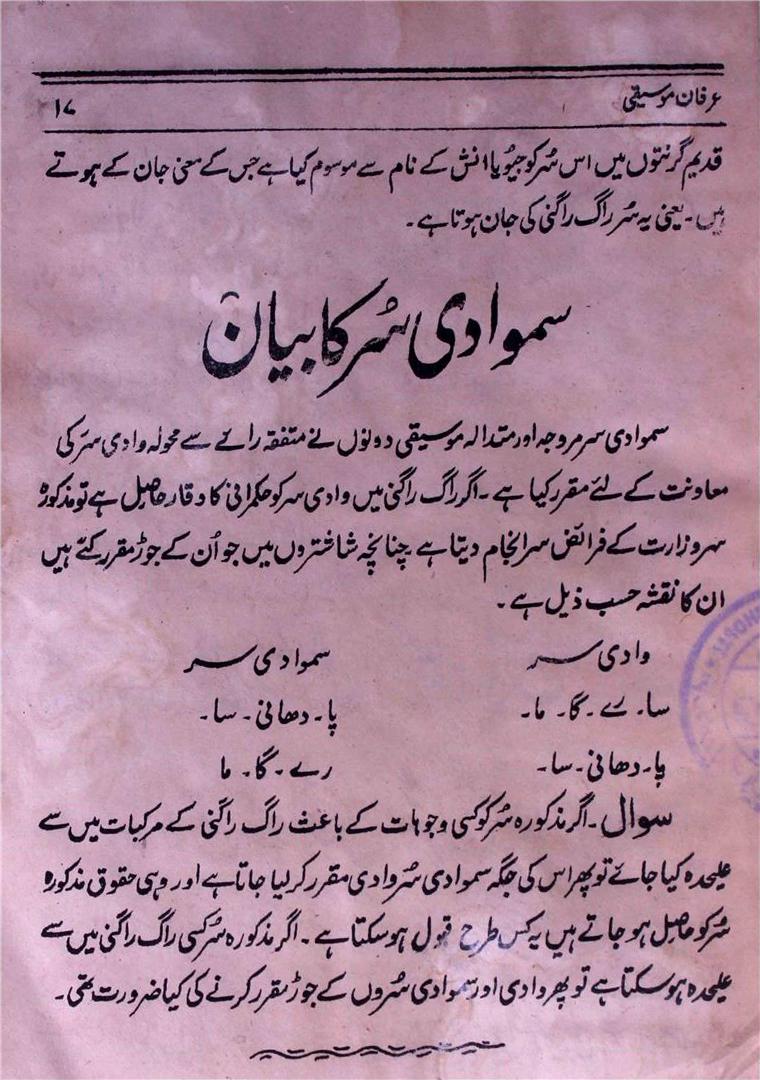 عرفان موسیقی
۱۷
قدیم گرنتوں میں اس سُر کو جیو یا انش کے نام سے موسوم کیا ہے جس کے معنی جان کے ہوتے
ہیں۔ یعنی یہ سُر راگ راگنی کی جان ہوتا ہے۔
سموادی سُر کا بیان
سموادی سر مروجہ اور متدالہ موسیقی دونوں نے متفقہ رائے سے محولہ وادی سُر کی
معاونت کے لئے مقرر کیا ہے۔ اگر راگ راگنی میں وادی سر کو حکمرانی کا وقار حاصل ہے تو مذکورہ
سر وزارت کے فرائض سرانجام دیتا ہے چنانچہ شاشتروں میں جو اُن کے جوڑ مقرر کئے ہیں
ان کا نقشہ حسب ذیل ہے۔
وادی سر سموادی سر
سا۔ رے۔ گا۔ ما۔ پا۔ دھا نی۔ سا۔
پا۔ دھا نی۔ سا۔ رے۔ گا۔ ما
سوال۔ اگر مذکورہ سُر کو کسی وجوہات کے باعث راگ راگنی کے مرکبات میں سے
علیحدہ کیا جائے تو پھر اس کی جگہ سموادی سُر وادی مقرر کر لیا جاتا ہے اور وہی حقوق مذکورہ
سُر کو حاصل ہو جاتے ہیں یہ کس طرح قبول ہو سکتا ہے۔ اگر مذکورہ سُر کسی راگ راگنی میں سے
علیحدہ ہو سکتا ہے تو پھر وادی اور سموادی سُروں کے جوڑ مقرر کرنے کی کیا ضرورت تھی۔